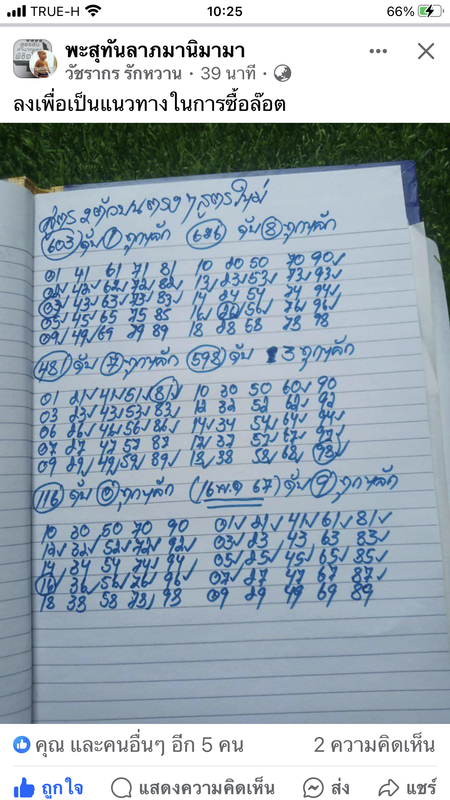 TRUE-H 10:25 66%
พะสุทันลาภมานิมามา
วัชรากร รักหวาน · 39 นาที ·
ลงเพื่อเป็นแนวทางในการซื้อล๊อต
สูตร 2ตัวบนตรงๆ สูตรใหม่
603 ดับ 1 ทุกหลัก 626 ดับ 8 ทุกหลัก
01 41 61 71 81 10 20 50 70 90
03 43 63 73 83 14 24 54 74 94
05 45 65 75 85 16 26 56 76 96
09 49 69 79 89 18 28 68 78 98
481 ดับ 7 ทุกหลัก 598 ดับ 3 ทุกหลัก
01 21 41 51 81 10 30 50 60 90
03 23 43 53 83 12 32 52 62 92
06 26 46 56 86 14 34 54 64 94
07 27 47 57 87 12 37 57 67 97
09 29 49 59 89 18 38 58 68 98
116 ดับ 0 ทุกหลัก (16 พ.ค 67) ดับ 9 ทุกหลัก
10 30 50 70 90 01 21 41 61 81
12 32 52 72 92 03 23 43 63 83
14 34 54 74 94 05 25 45 65 85
16 36 56 76 96 07 27 47 67 87
18 38 58 78 98 09 29 49 69 89
คุณ และคนอื่นๆ อีก 5 คน 2 ความคิดเห็น
ถูกใจ แสดงความคิดเห็น ส่ง แชร์